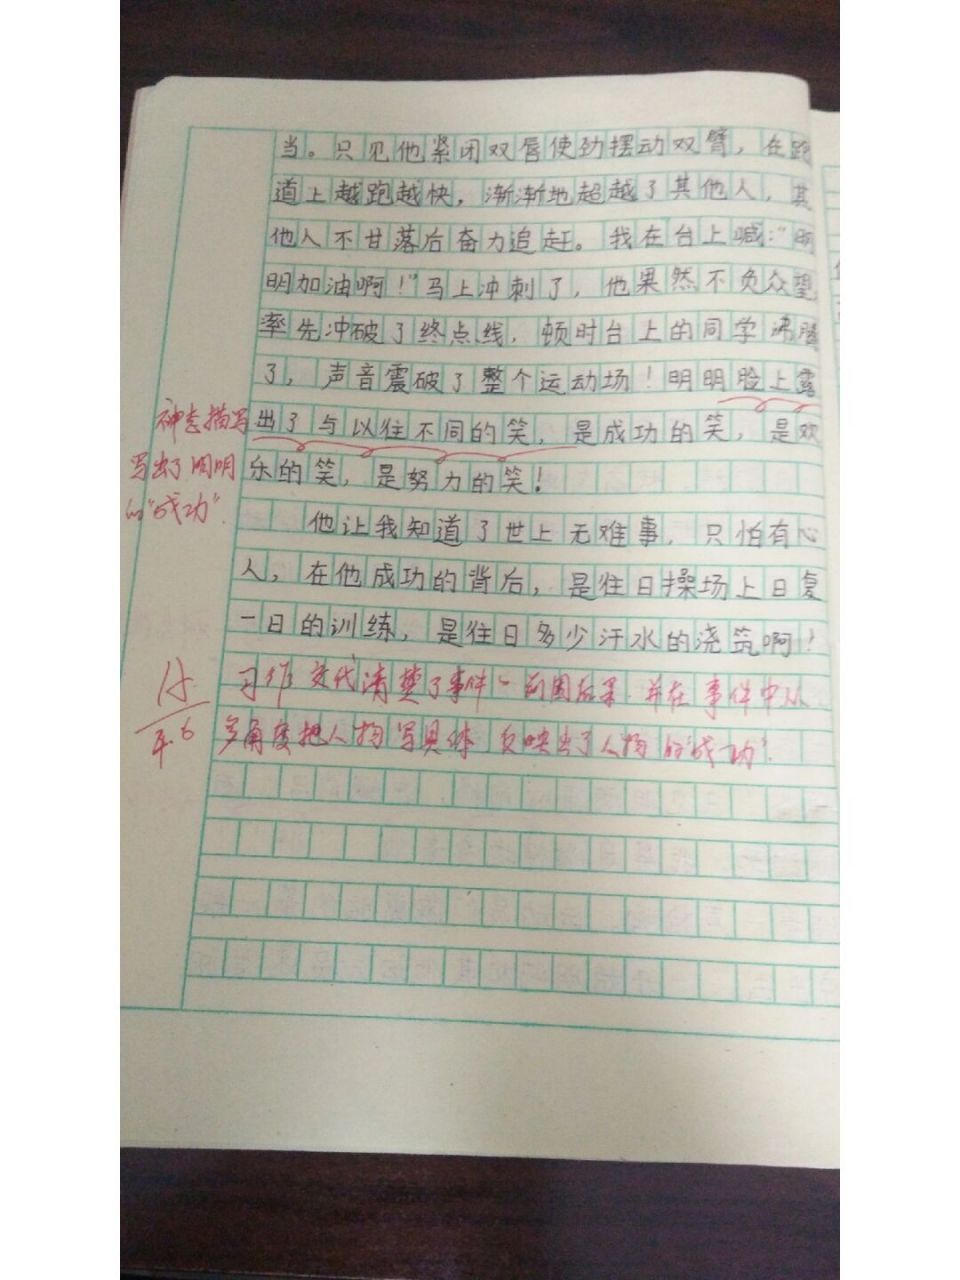 当。只见他紧闭双唇使劲摆动双臂，在跑
道上越跑越快，渐渐地超越了其他人，其
他人不甘落后奋力追赶。我在台上喊：“明
明加油啊！”马上冲刺了，他果然不负众望
率先冲破了终点线，顿时台上的同学沸腾
了，声音震破了整个运动场！明明脸上露
出了与以往不同的笑，是成功的笑，是欢
乐的笑，是努力的笑！
神态描写
写出了明明
的“成功”.
他让我知道了世上无难事，只怕有心
人，在他成功的背后，是往日操场上日复
一日的训练，是往日多少汗水的浇筑啊！
习作交代清楚了事件的前因后果.并在事件中从
多角度把人物写具体 反映出了人物的“成功”.